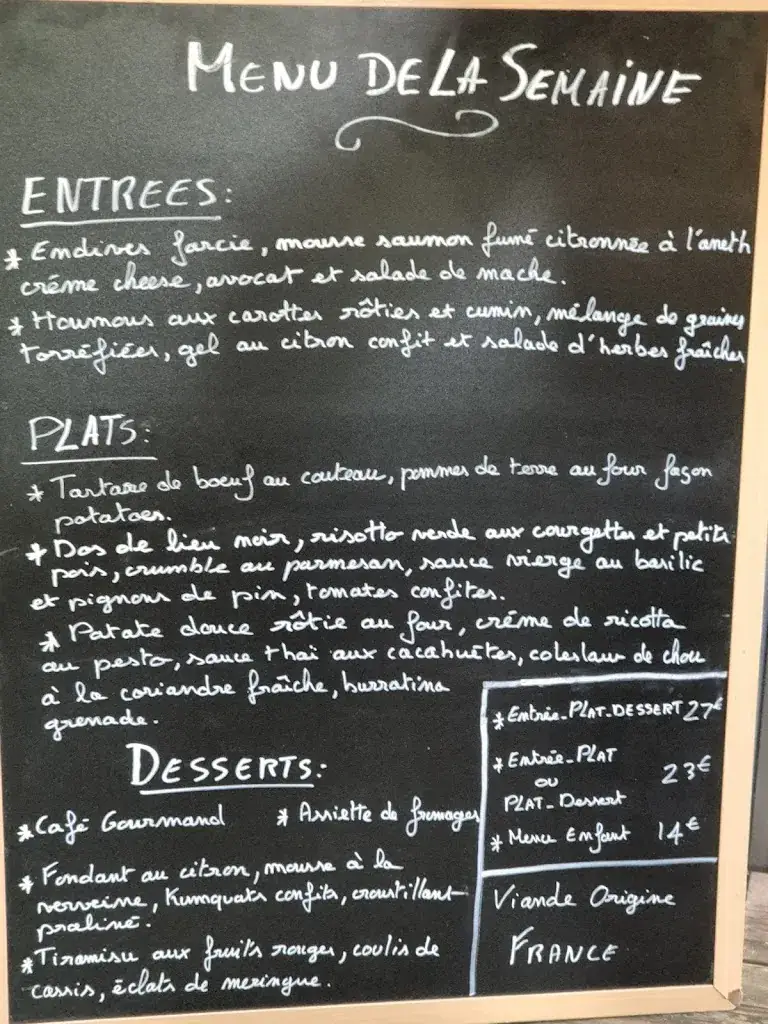 MENU DE LA SEMAINE
ENTREES:
* Endives farcie, mousse saumon fumé citronnée à l'aneth
créme cheese, avocat et salade de mache.
* Houmous aux carottes rôties et cumin, mélange de graines
torréfiées, gel au citron confit et salade d'herbes fraîches
PLATS:
* Tartare de boeuf au couteau, pommes de terre au four façon
potatoes.
* Dos de lieu noir, risotto verde aux courgettes et petits
pois, crumble au parmesan, sauce vierge au basilic
et pignons de pin, tomates confites.
* Patate douce rôtie au four, créme de ricotta
au pesto, sauce thaï aux cacahuètes, coleslaw de chou
à la coriandre fraîche, burratina
grenade.
* Entrée-PLAT-DESSERT 27€
* Entrée-PLAT
ou
PLAT-Dessert
23€
* Menu Enfant 14€
Viande Origine
FRANCE
DESSERTS:
* Café Gourmand * Assiette de fromages
* Fondant au citron, mousse à la
verveine, Kumquats confits, croustillant
praliné.
* Tiramisu aux fruits rouges, coulis de
cassis, éclats de meringue.